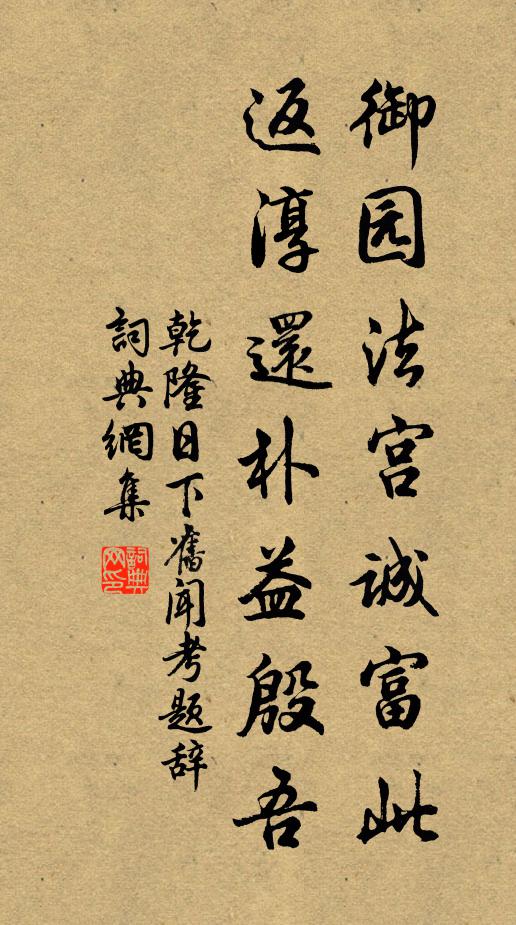 御园法宫诚富此
返淳還朴益殷吾
乾隆日下舊聞考題辞
詞典網集
詞典网印